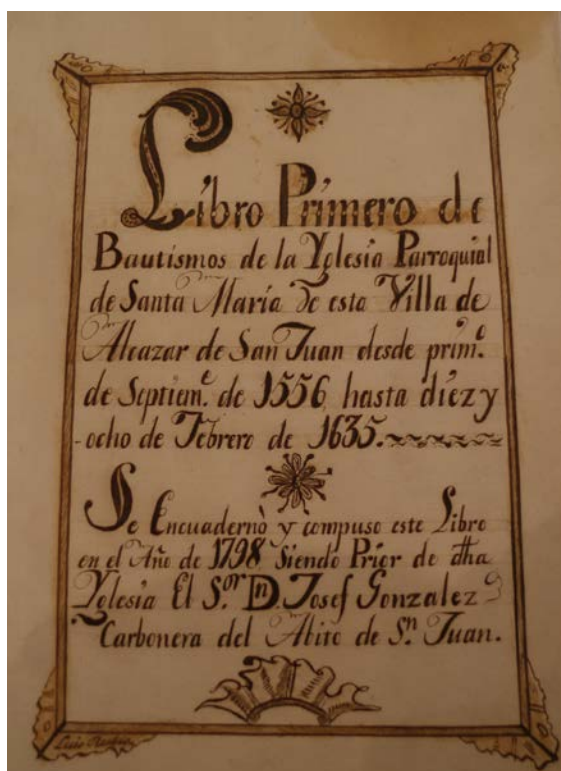 Libro Primero de
Bautismos de la Yglesia Parroquial
de Santa María de esta Villa de
Alcazar de San Juan desde prim.o
de Septiem.e de 1556, hasta diez y
-ocho de Febrero de 1635.
Se Encuadernò y compuso este Libro
en el Año de 1798, Siendo Prior de dha
Yglesia El S.or Dn. Josef Gonzalez
Carbonera del Abito de S.n Juan.